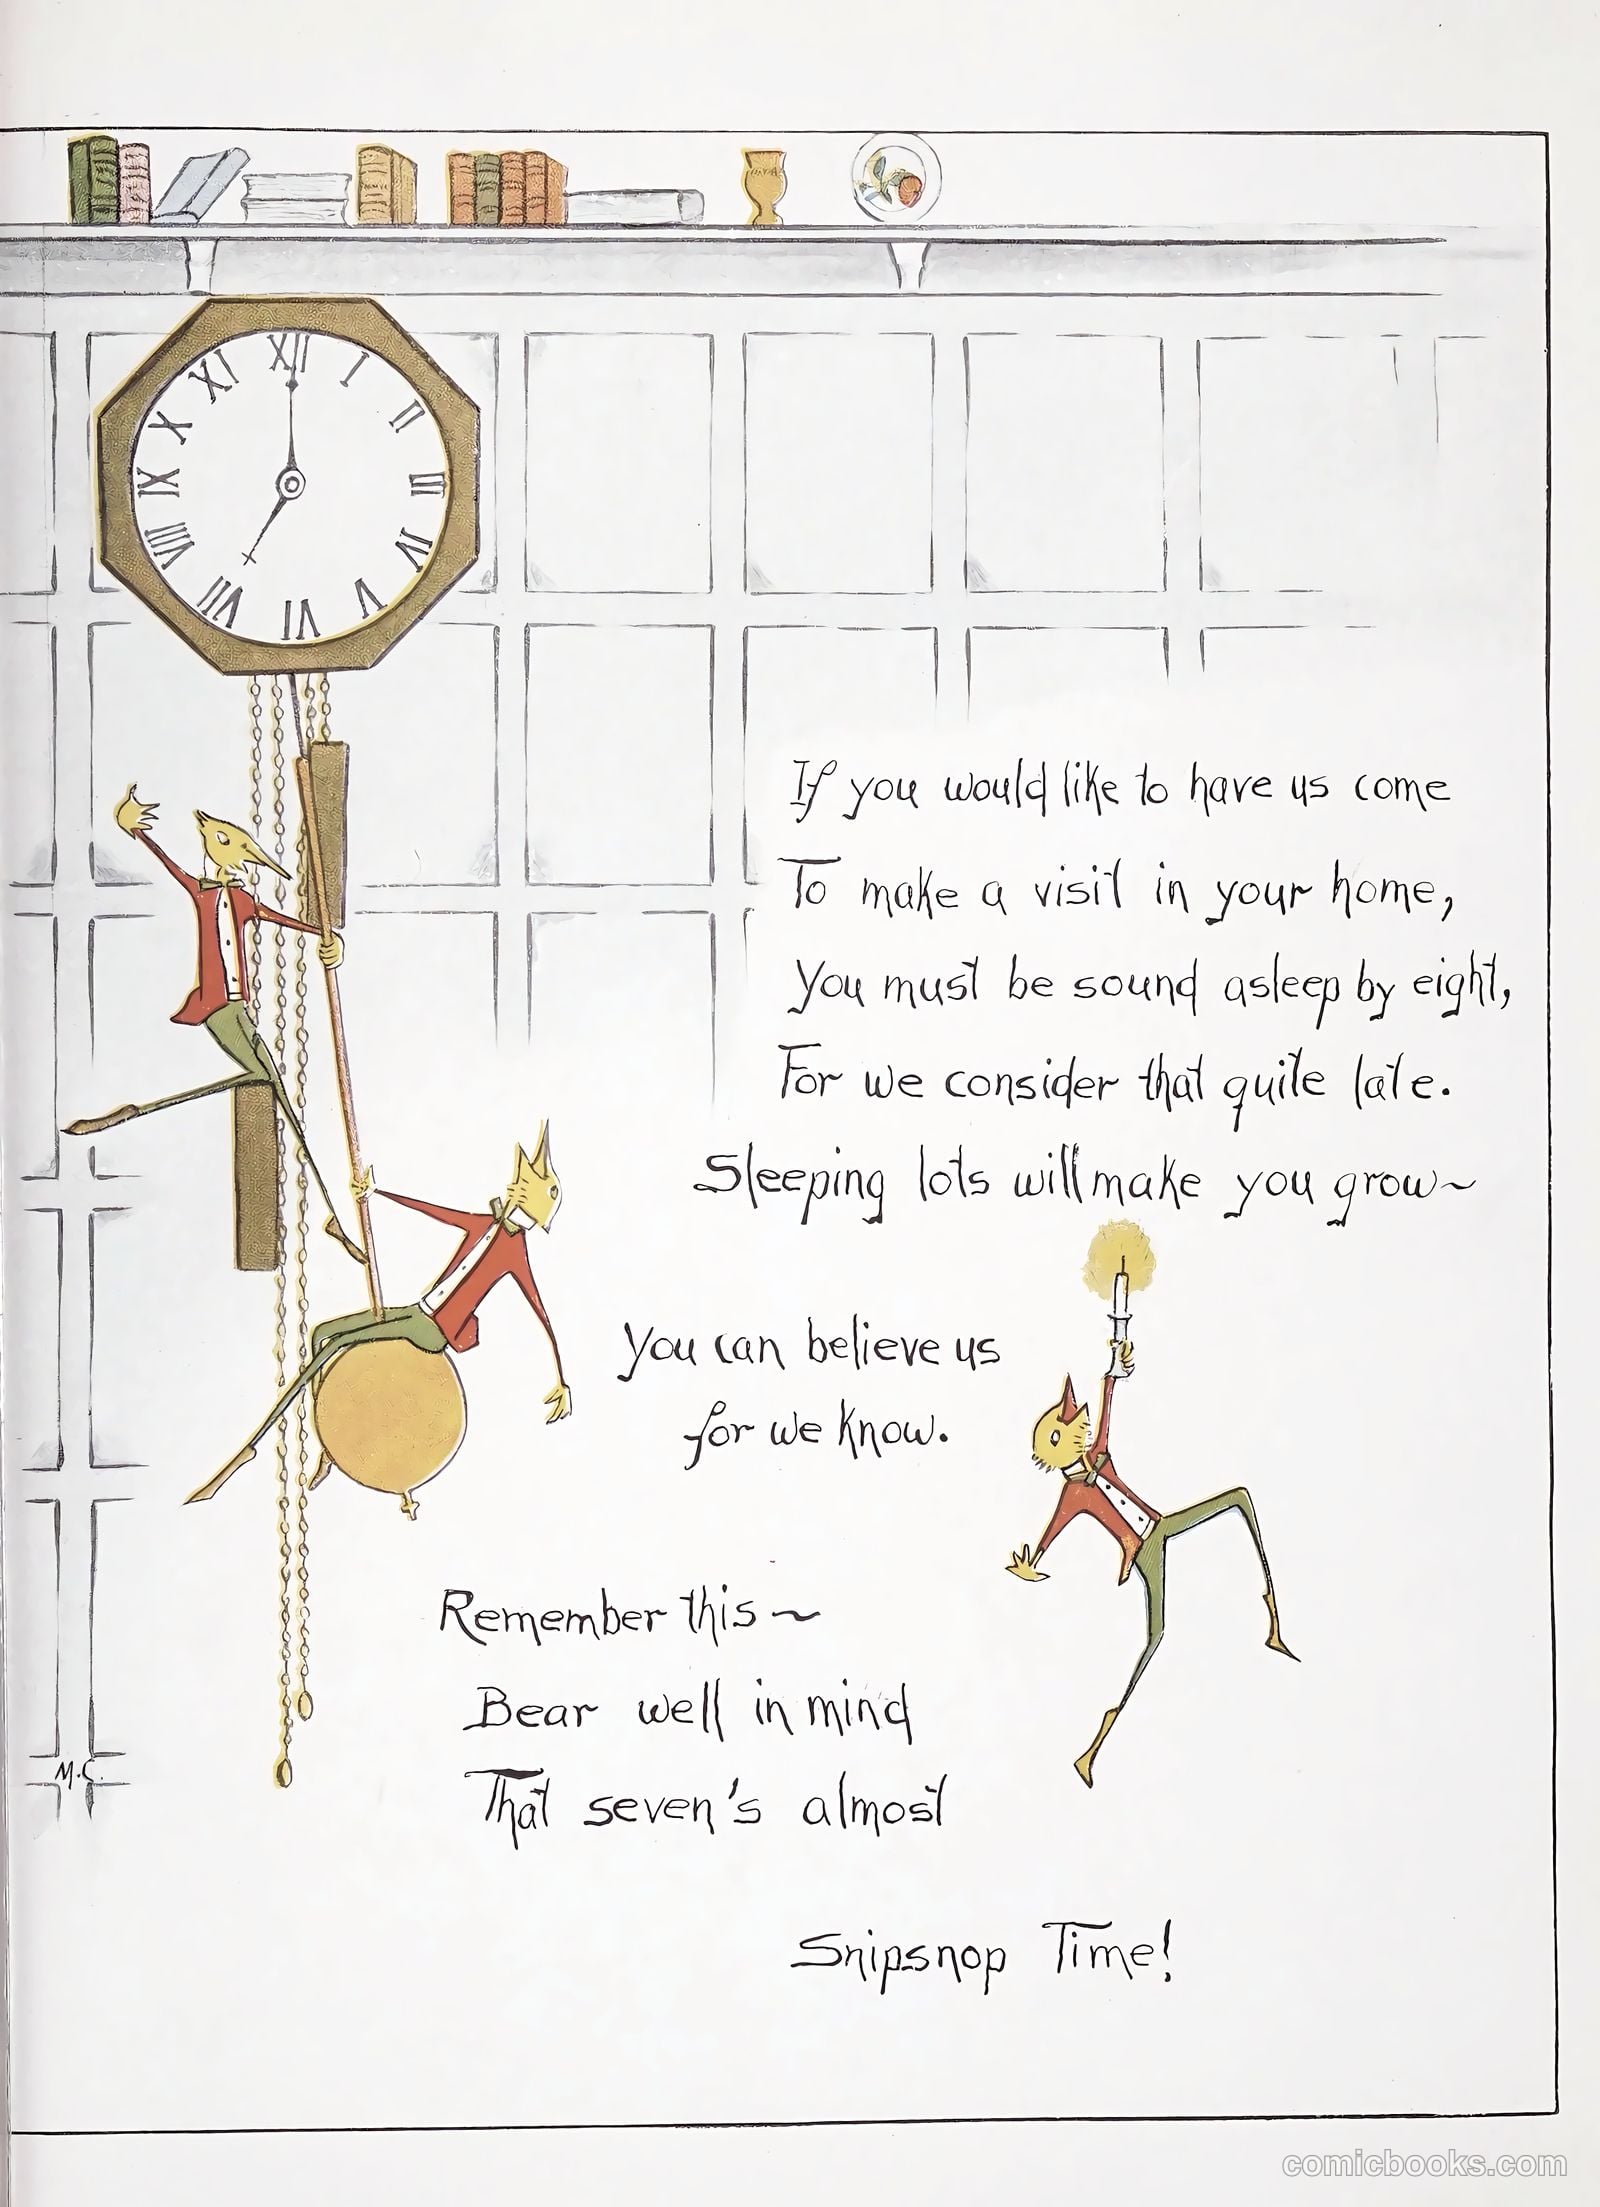 XII
I
II
III
IV
V
VI
VII
VIII
IX
X
XI
If you would like to have us come
To make a visit in your home,
You must be sound asleep by eight,
For we consider that quite late.
Sleeping lots will make you grow~
You can believe us
for we know.
Remember this ~
Bear well in mind
That seven's almost
Snipsnop Time!
M.C.
comicbooks.com